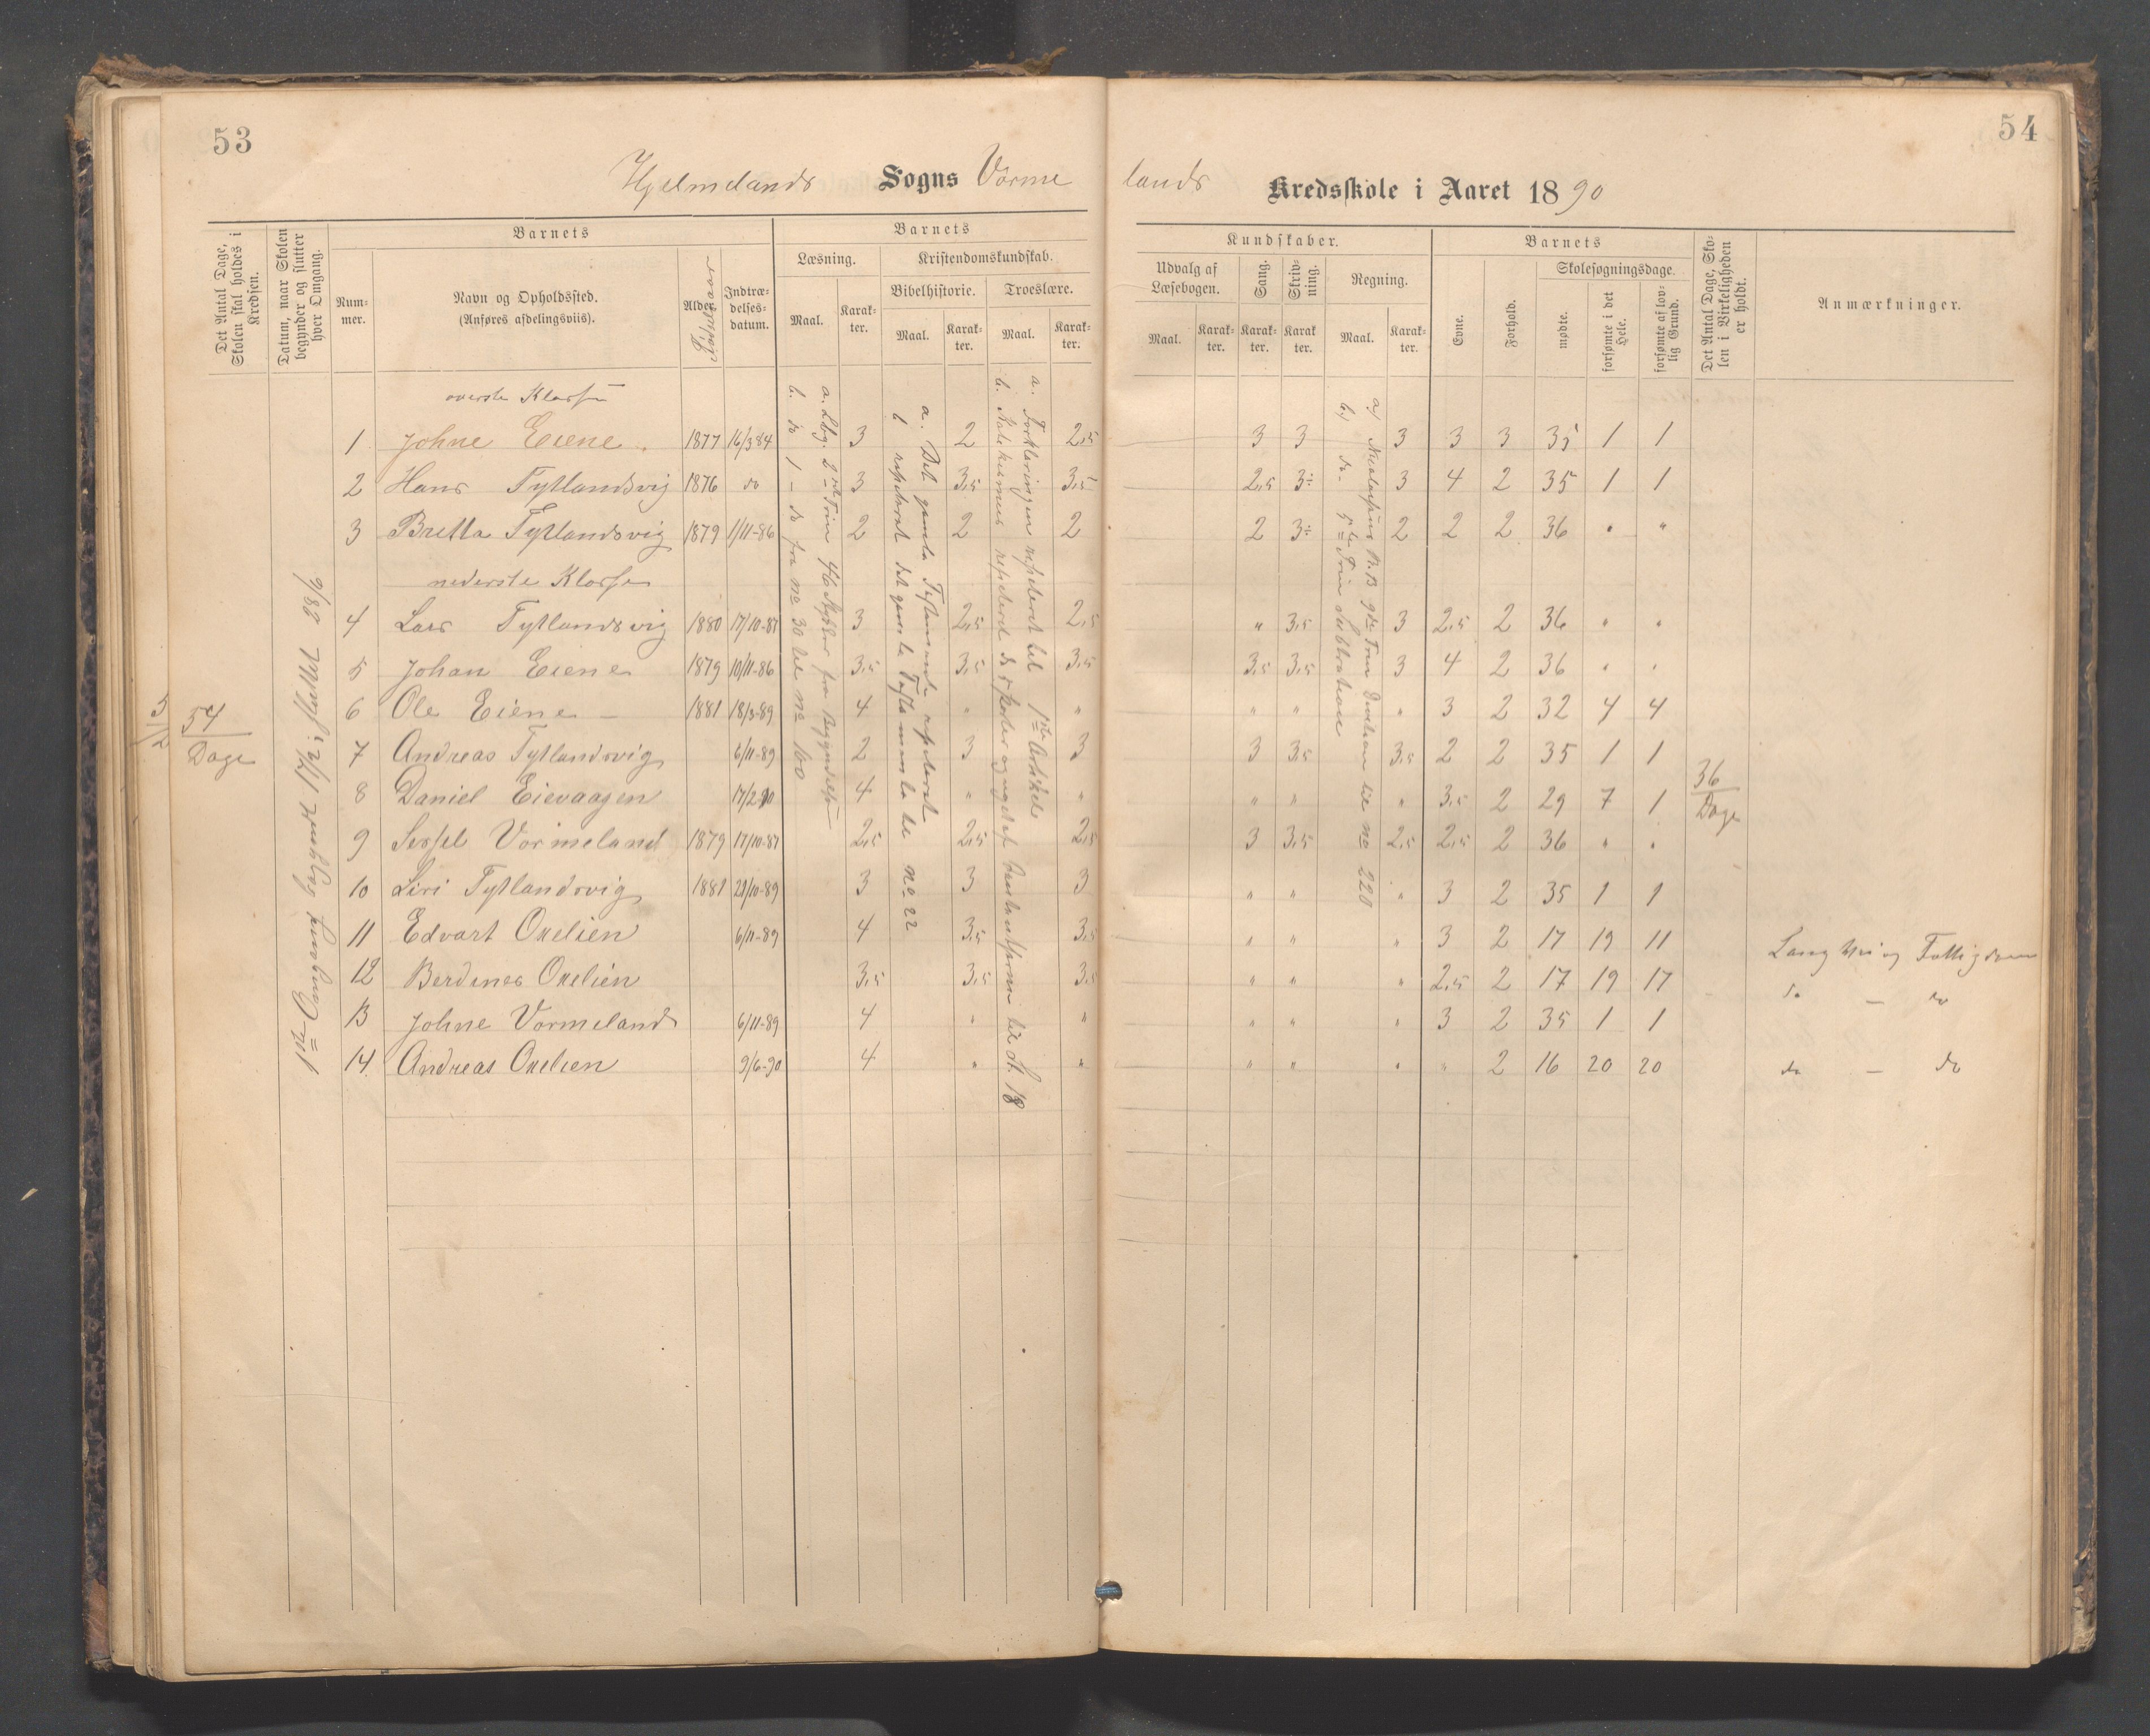 53
54
Hjelmelands Sogns Vormelands Kredsskole i Aaret 1890
Det Antal Dage, Skolen skal holdes i Kredsen.
Datum, naar Skolen begynder og slutter hver Omgang.
Barnets
Nummer.
Navn og Opholdssted.
(Anføres afdelingsviis).
Alder
Fødselsaar
Indtrædelsesdatum.
Barnets
Læsning.
Maal.
Karakter.
Kristendomskundskab.
Bibelhistorie.
Maal.
Karakter.
Troeslære.
Maal.
Karakter.
Kundskaber.
Udvalg af Læsebogen.
Maal.
Karakter.
Sang.
Karakter.
Skrivning.
Karakter.
Regning.
Maal.
Karakter.
Barnets
Evne.
Forhold.
Skolesøgningsdage.
mødte.
forsømte i det Hele.
forsømte af lovlig Grund.
Det Antal Dage, Skolen i Virkeligheden er holdt.
Anmærkninger.
54
Dage
36
Dage
øverste Klasse
1 Johne Eiene 1877 16/3 84 3 2 2,5 3 3 3 3 3 35 1 1
2 Hans Tytlandsvig 1876 do 3 3,5 3,5 2,5 3÷ 3 4 2 35 1 1
3 Britta Tytlandsvig 1879 1/11-86 2 2 2 2 3÷ 2 2 2 36 " "
nederste Klasse
4 Lars Tytlandsvig 1880 17/10-87 3 2,5 2,5 " 3,5 3 2,5 2 36 " "
5 Johan Eiene 1879 10/11-86 3,5 3,5 3,5 3,5 3,5 3 4 2 36 " "
6 Ole Eiene 1881 18/3-89 4 " " " " " 3 2 32 4 4
7 Andreas Tytlandsvig 6/11-89 2 3 3 3 3,5 3,5 2 2 35 1 1
8 Daniel Eievaagen 17/2 90 4 " " " " " 3,5 2 29 7 1
9 Sissel Vormeland 1879 17/10-87 2,5 2,5 2,5 3 3,5 2,5 2,5 2 36 " "
10 Siri Tytlandsvig 1881 21/10-89 3 3 3 " " " 3 2 35 1 1
11 Edvart Oxelien 6/11-89 4 3,5 3,5 " " " 3 2 17 19 11 Lang Vei og Fattigdom
12 Berdines Oxelien 3,5 3,5 3,5 " " " 2,5 2 17 19 17 do — do
13 Johne Vormeland 6/11-89 4 " " " " " 3 2 35 1 1
14 Andreas Oxelien 9/6-90 4 " " " " " " 2 16 20 20 do — do
1ste Omgang
a. Lbg. 2det Trin 46 Stykker fra Begyndelsen
b. do 1 - do fra No 30 til No 100
a. Det gamle Testamente repeteret
b. repeteret det gamle Testamente til No 22
a. Forklaringen repeteret til 1ste Artikel
a) B 9de Trin Division til No 220
b) do 5te Trin Subtraktion